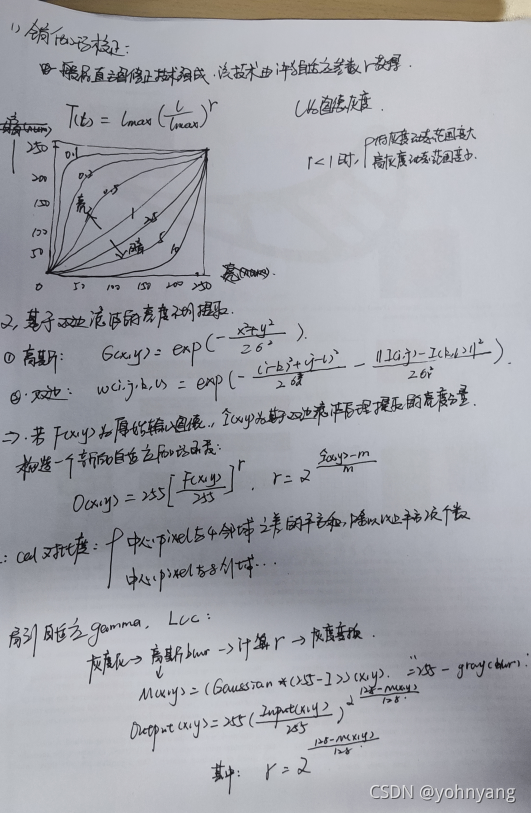 1) 伽马校正:
直方图修正技术组成. 该技术由 自适应参数 r
T(l) = lmax (l/lmax)^r
l为图像灰度.
r<1时, 低灰度动态范围变大
高灰度动态范围变小
250 0.1
200 0.2 0.5
150 亮 1
100 2.5
50 暗 5 10
0 50 100 150 200 250
2, 基于双边滤波的亮度 提取.
① 高斯: G(x,y) = exp(- x²+y² / 2σ²).
②. 双边: w(i,j,k,l) = exp(- (i-k)²+(j-l)² / 2σ² - ||I(i,j)-I(k,l)||² / 2σr²).
⇒. 若 F(x,y) 为原始输入图像, Î(x,y)为基于双边滤波后提取的亮度分量.
构造一个新的自适应 函数:
O(x,y) = 255 [F(x,y)/255]^r. r = 2^(Î(x,y)-m / m)
cal 对比度: 中心pixel与4邻域之差的平方和, 除以以上平方项个数
中心pixel与8邻域...
局部自适应 gamma. LCC:
灰度化 → 高斯blur → 计算r → 灰度变换.
M(x,y) = (Gaussian * (255-I))(x,y). = 255 - gray(blur):
Output(x,y) = 255 (Input(x,y)/255)^2^(128-M(x,y)/128).
其中: r = 2^(128-M(x,y)/128)
CSDN @yohnyang